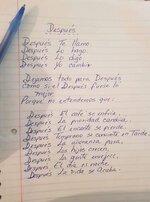 Después
Después Te llamo.
Después Lo hago.
Después Lo digo
Después Yo cambio
Dejamos todo para Después
como si el Después fuese lo
mejor.
Porque no entendemos que:
Después El café se enfría,
Después La prioridad cambia,
Después El encanto se pierde,
Después Temprano se convierte en Tarde,
Después La añoranza pasa,
Después Los hijos crecen,
Después La gente envejece,
Después El día es noche,
Después La vida se Acaba.